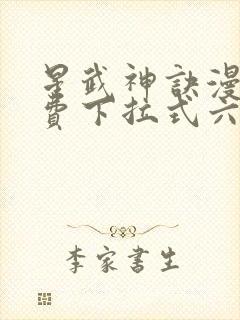 星武神訣漫
費下拉式六
李家書生